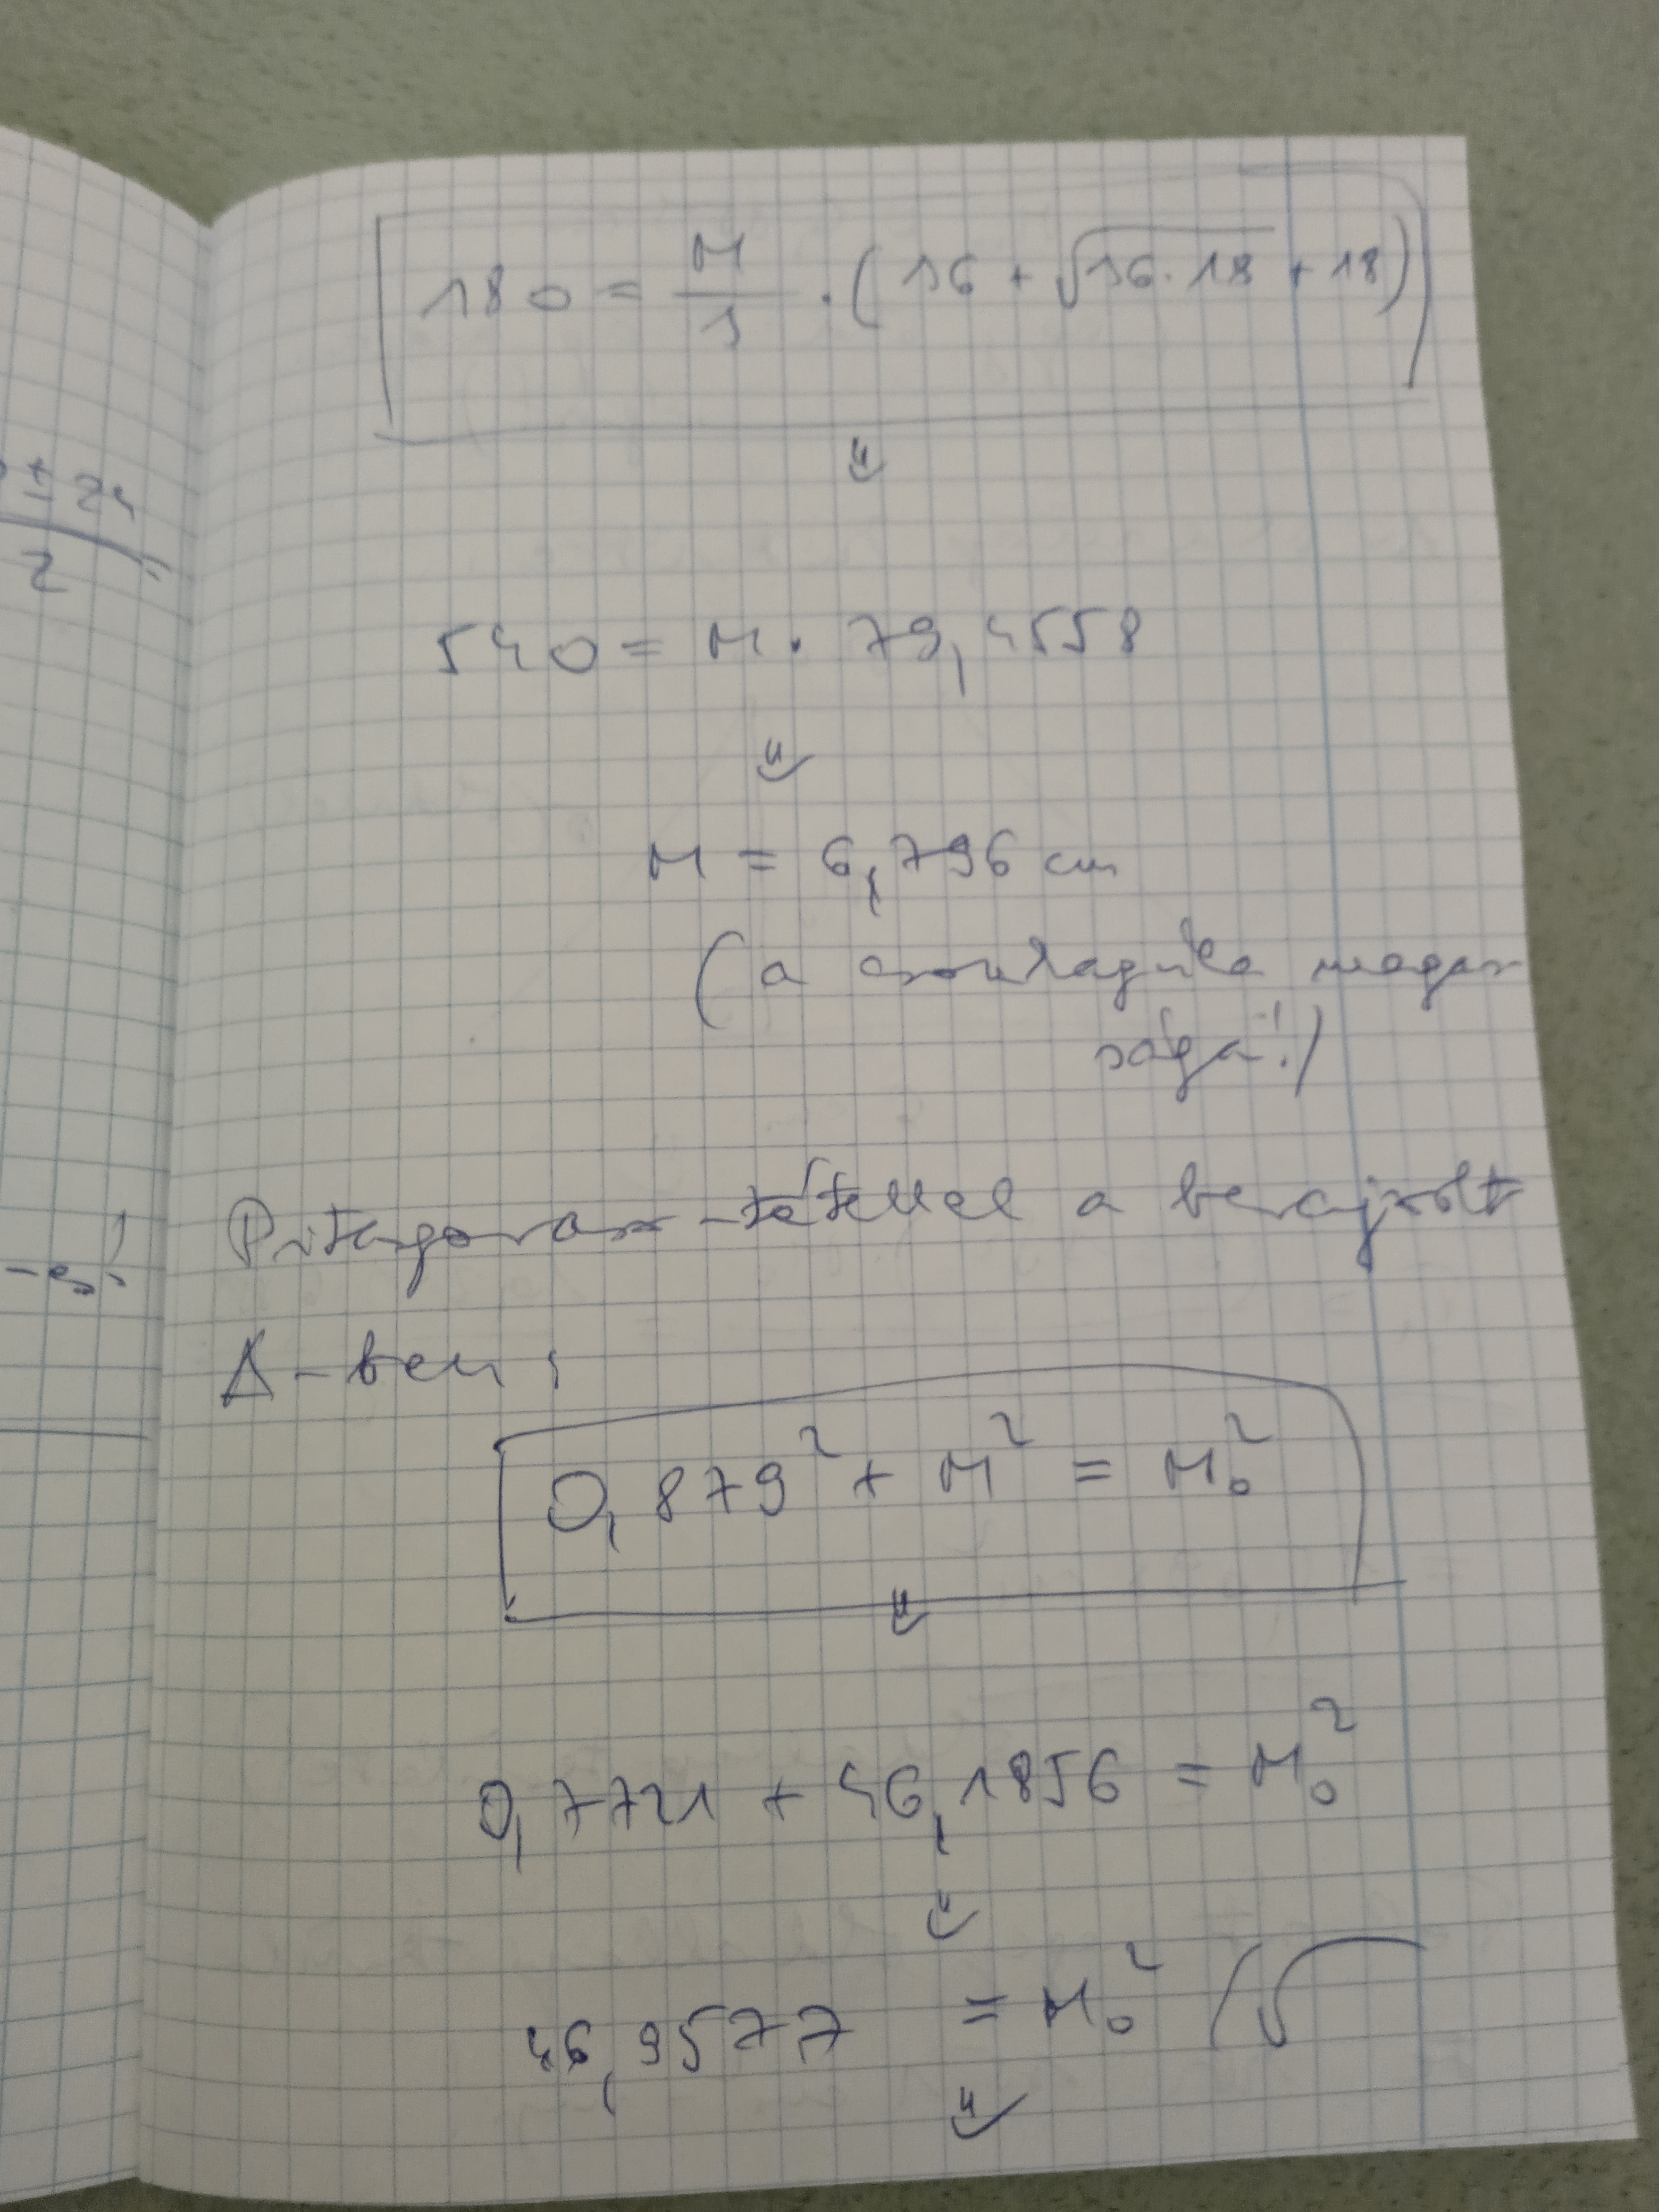 180 = M/3 · (36 + √36·18 + 18)
± 24
2
540 = M · 79,4558
M = 6,796 cm
(a csonkagúla magas
sága!)
Pitagorasz-tétellel a berajzolt
-es!
Δ-ben:
0,879² + M² = M₀²
0,7721 + 46,1856 = M₀²
46,9577 = M₀² /√